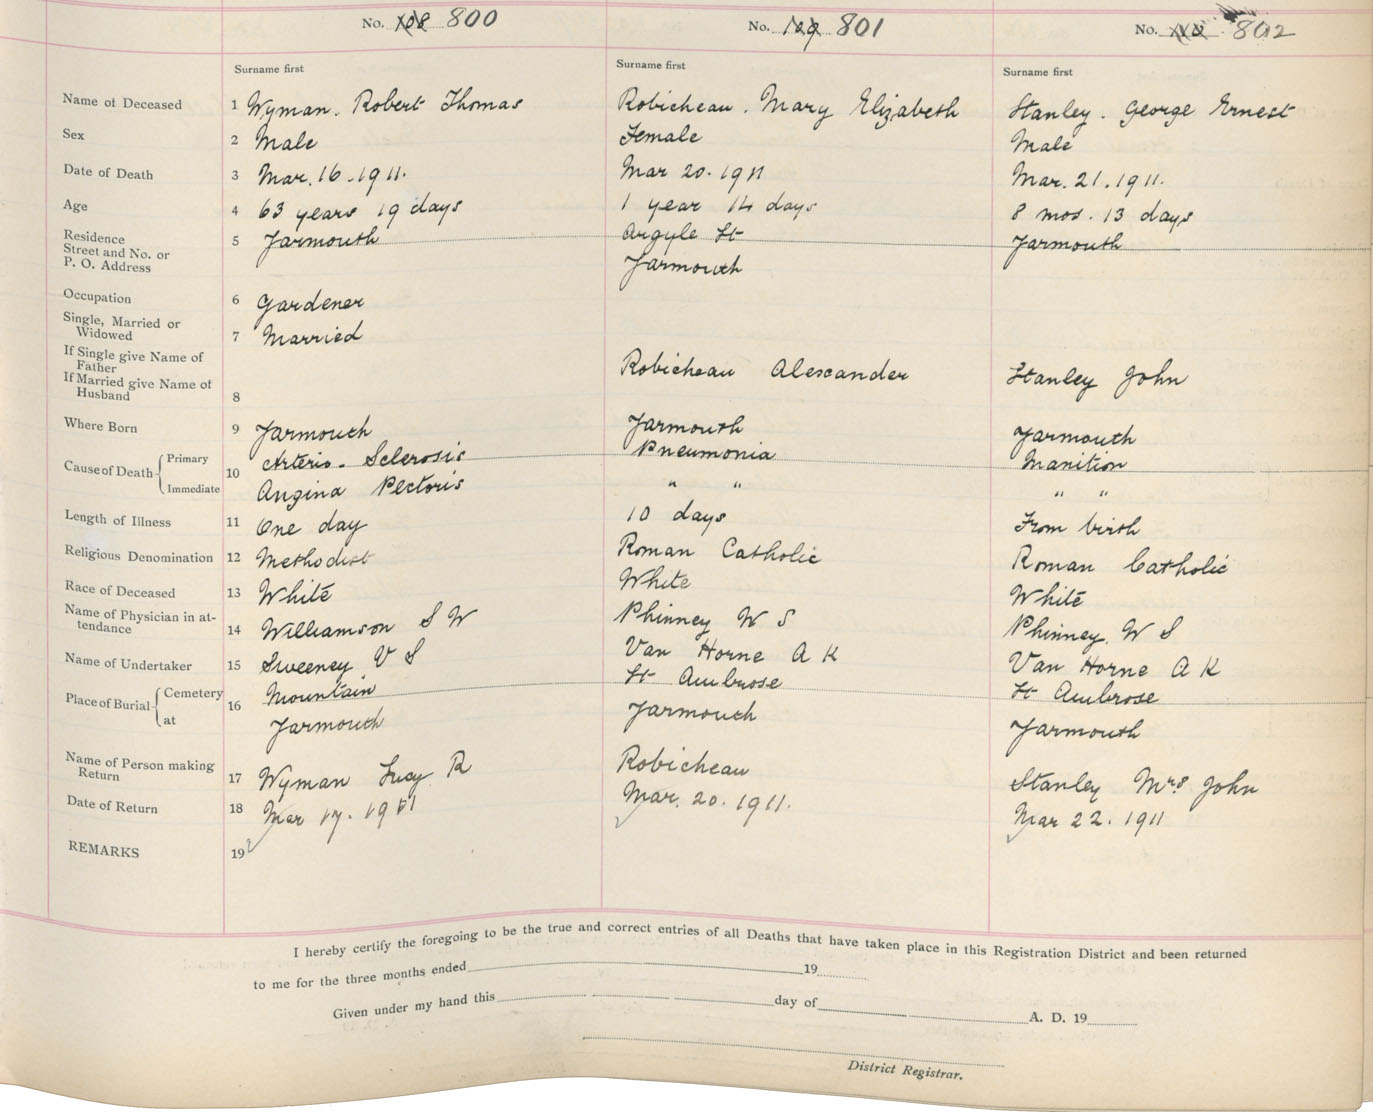 No. 108 800
No. 109 801
No. 110 802
Surname first
Surname first
Surname first
Name of Deceased 1 Wyman. Robert Thomas Robicheau. Mary Elizabeth Stanley. George Ernest
Sex 2 Male Female Male
Date of Death 3 Mar. 16-1911. Mar 20-1911 Mar. 21. 1911.
Age 4 63 years 19 days 1 year 14 days 8 mos. 13 days
Residence
Street and No. or
P. O. Address
5 Yarmouth Argyle St Yarmouth
Yarmouth
Occupation 6 Gardener
Single, Married or
Widowed 7 Married
If Single give Name of
Father
If Married give Name of
Husband 8 Robicheau Alexander Stanley John
Where Born 9 Yarmouth Yarmouth Yarmouth
Cause of Death Primary 10 Arterio-Sclerosis Pneumonia Inanition
Immediate Angina Pectoris " " " "
Length of Illness 11 One day 10 days From birth
Religious Denomination 12 Methodist Roman Catholic Roman Catholic
Race of Deceased 13 White White White
Name of Physician in at-
tendance 14 Williamson S W Phinney W S Phinney W S
Name of Undertaker 15 Sweeney V S Van Horne A K Van Horne A K
Place of Burial Cemetery 16 Mountain St Ambrose St Ambrose
at Yarmouth Yarmouth Yarmouth
Name of Person making
Return 17 Wyman Lucy R Robicheau Stanley Mrs. John
Date of Return 18 Mar 17. 1911 Mar. 20. 1911. Mar 22. 1911
REMARKS 19
I hereby certify the foregoing to be the true and correct entries of all Deaths that have taken place in this Registration District and been returned
to me for the three months ended 19
Given under my hand this day of A. D. 19
District Registrar.